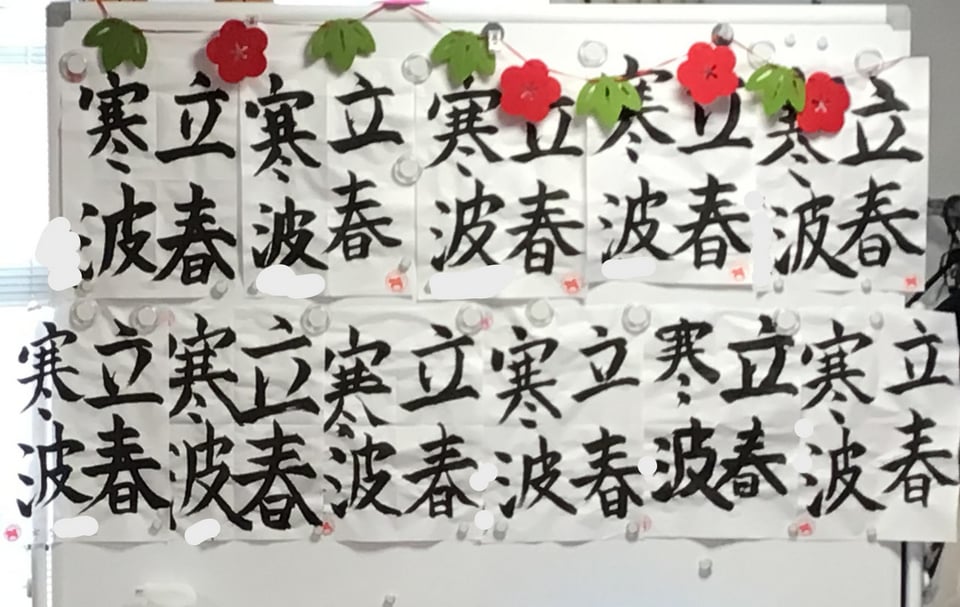 立春
寒波
立春
寒波
立春
寒波
立春
寒波
立春
寒波
立春
寒波
立春
寒波
立春
寒波
立春
寒波
立春
寒波
立春
寒波